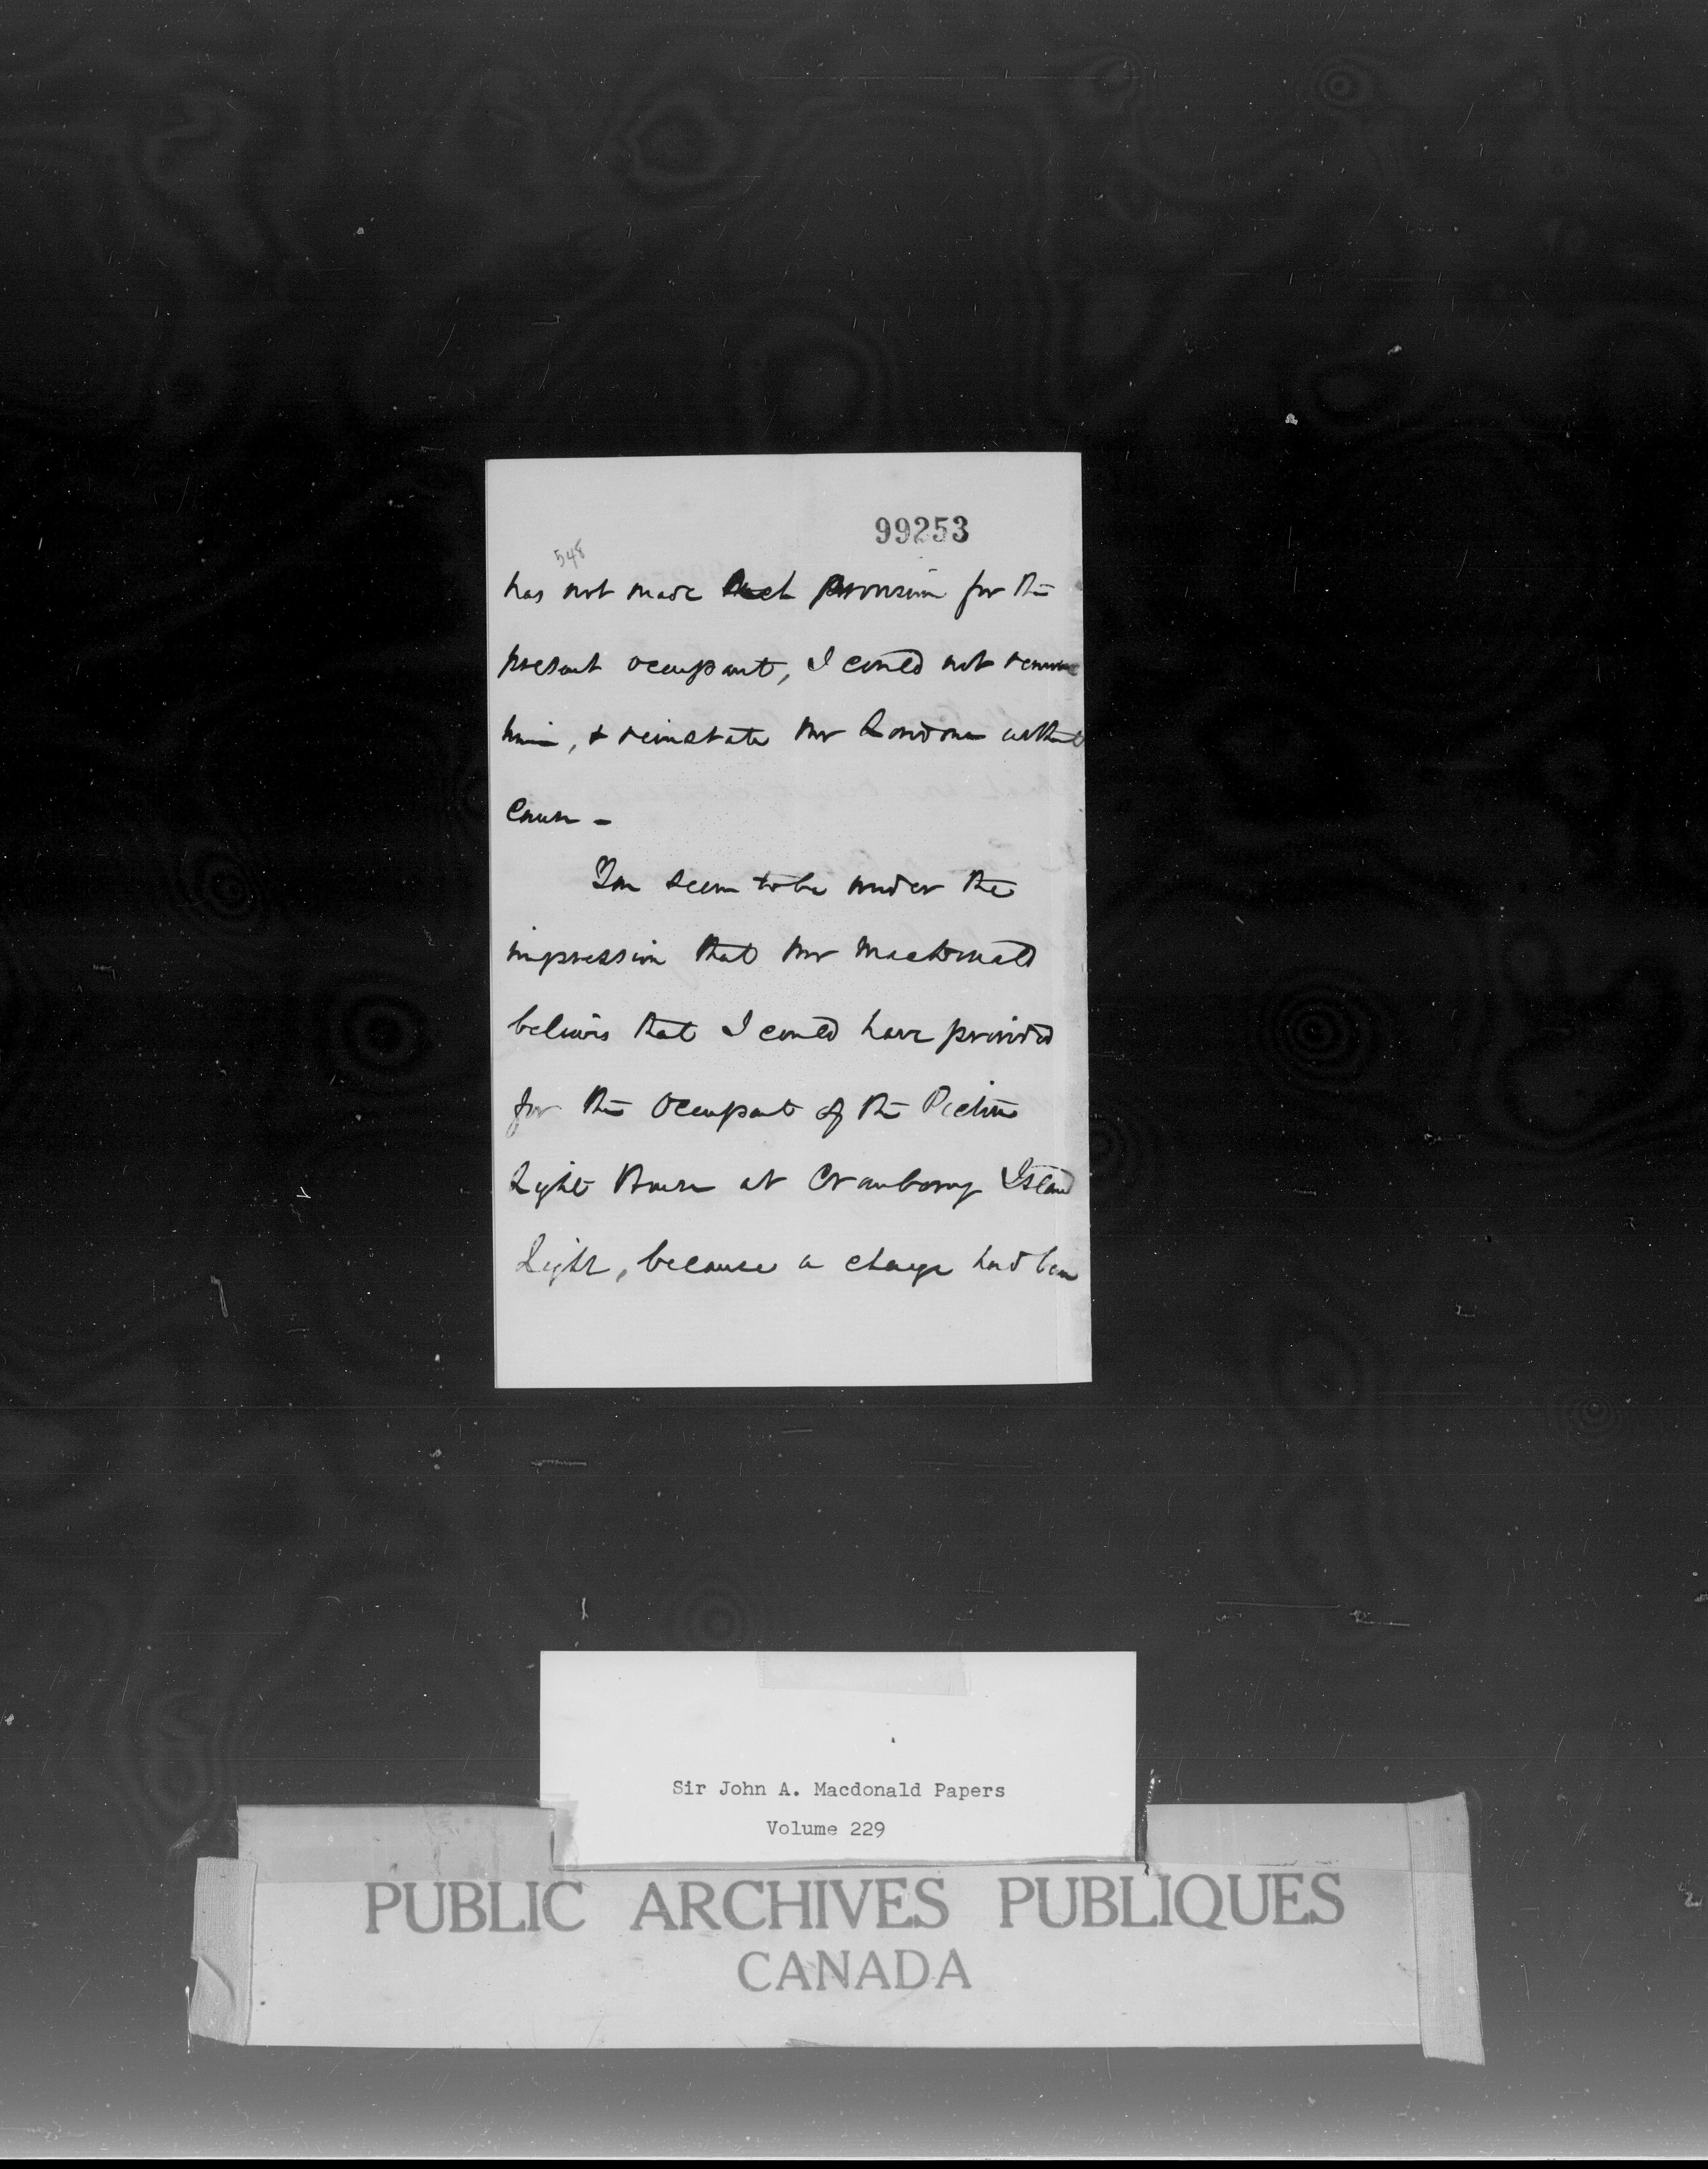 99253
548
has not made such provision for the
present occupant, I could not remove
him, & reinstate Mr without
cause -
You seem to be under the
impression that Mr Macdonald
believes that I could have provided
for the Occupant of the Pictou
Light House at Cranberry Island
Light, because a change had been
Sir John A. Macdonald Papers
Volume 229
PUBLIC ARCHIVES PUBLIQUES
CANADA